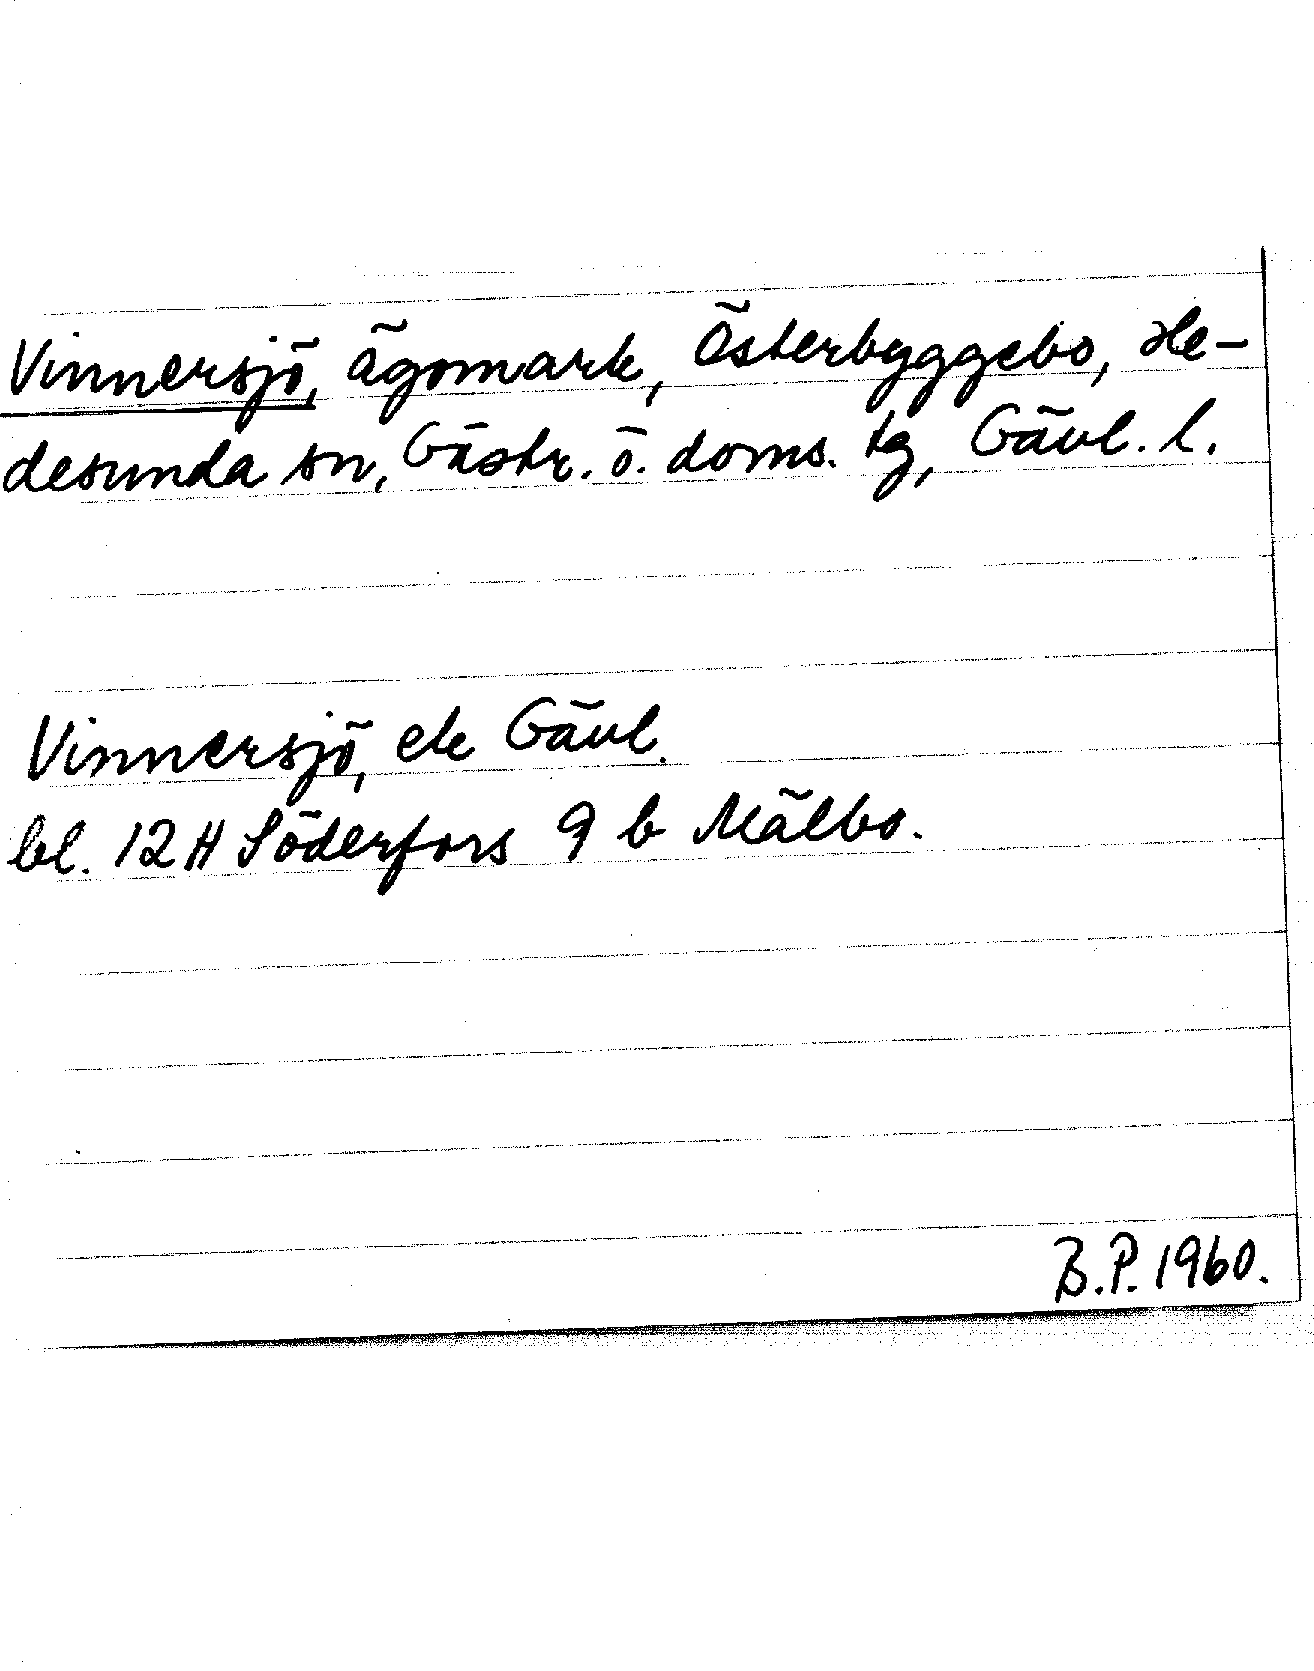 Vinnersjö, ägomark, Österbyggebo, He-
desunda sn, Gästr. ö. doms. tg, Gävl. l.
Vinnersjö, ek Gävl.
bl. 12H Söderfors 9 b Mälbo.
B.P. 1960.